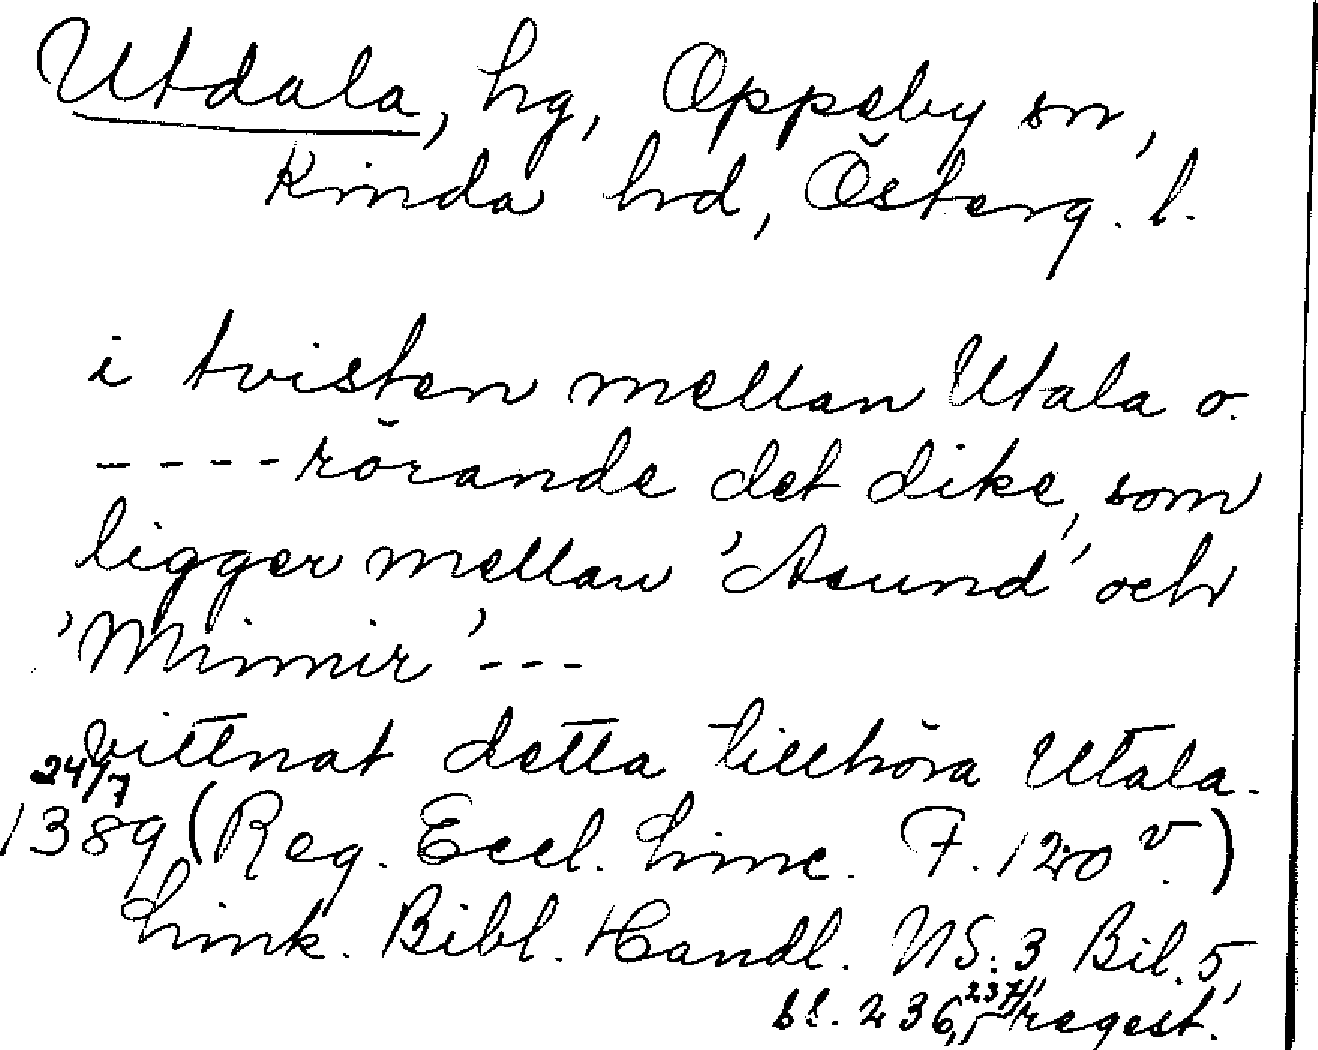 Utdala, hg, Oppeby sn,
Kinda hd, Österg. l.
i tvisten mellan Utala o.
---- rörande det dike, som
ligger mellan 'Asund' och
'Mimnir' ---
vittnat detta tillhöra Utala.
24/7
1389 (Reg. Eccl. Linc. F. 120 v.)
Link. Bibl. Handl. NS. 3, Bil. 5,
bl. 236, 237, regest.